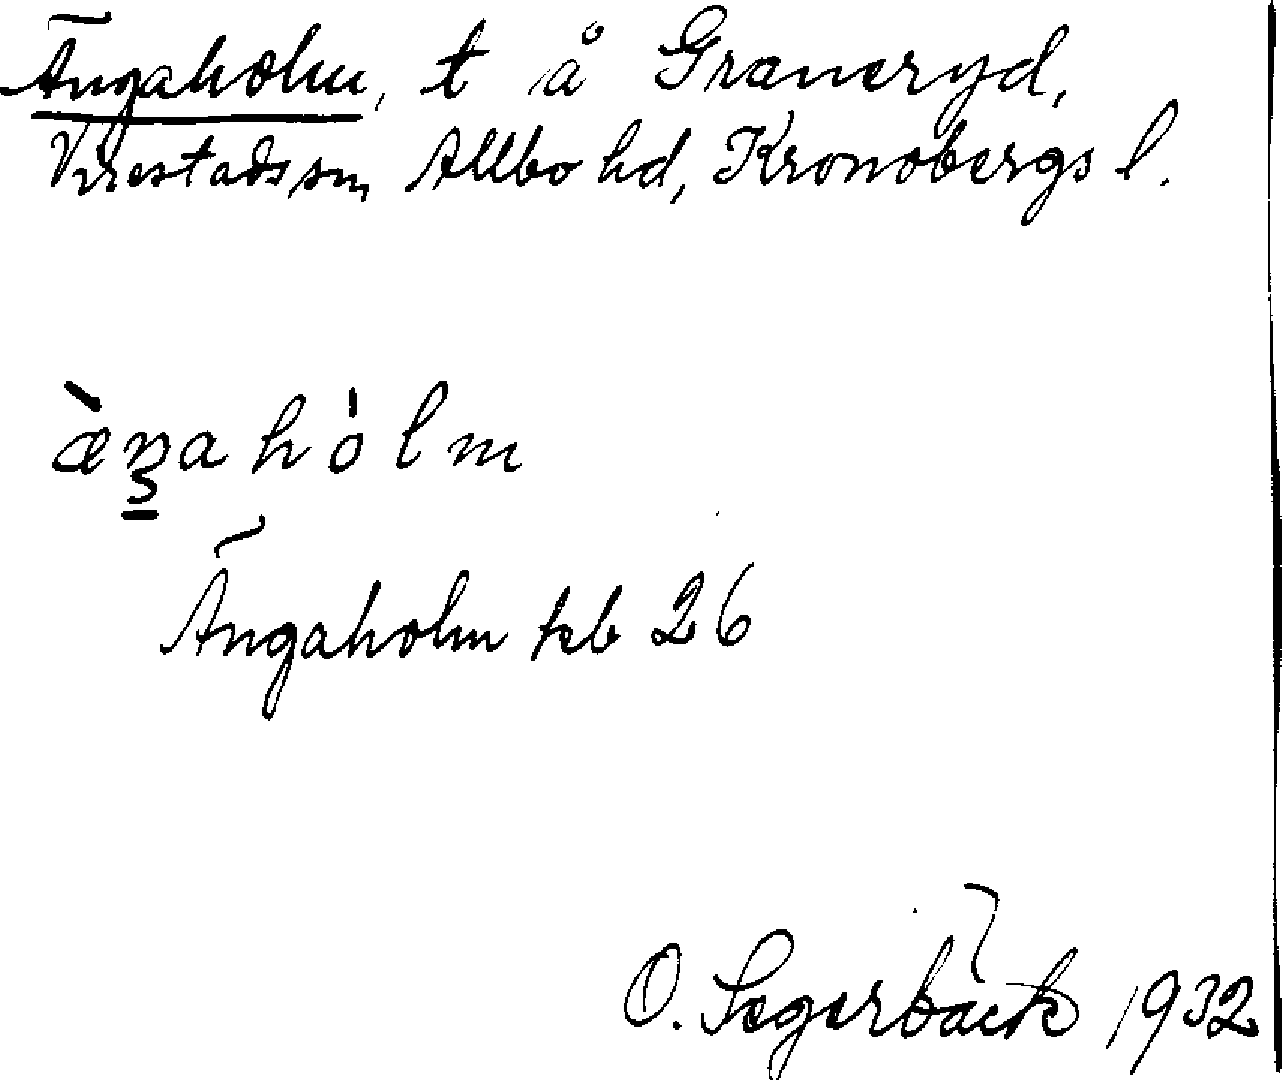 Ängaholm, t å Graneryd,
Virestads sn, Allbo hd, Kronobergs l.
æ̀ŋahólm
Ängaholm kb 26
O. Segerbäck 1932